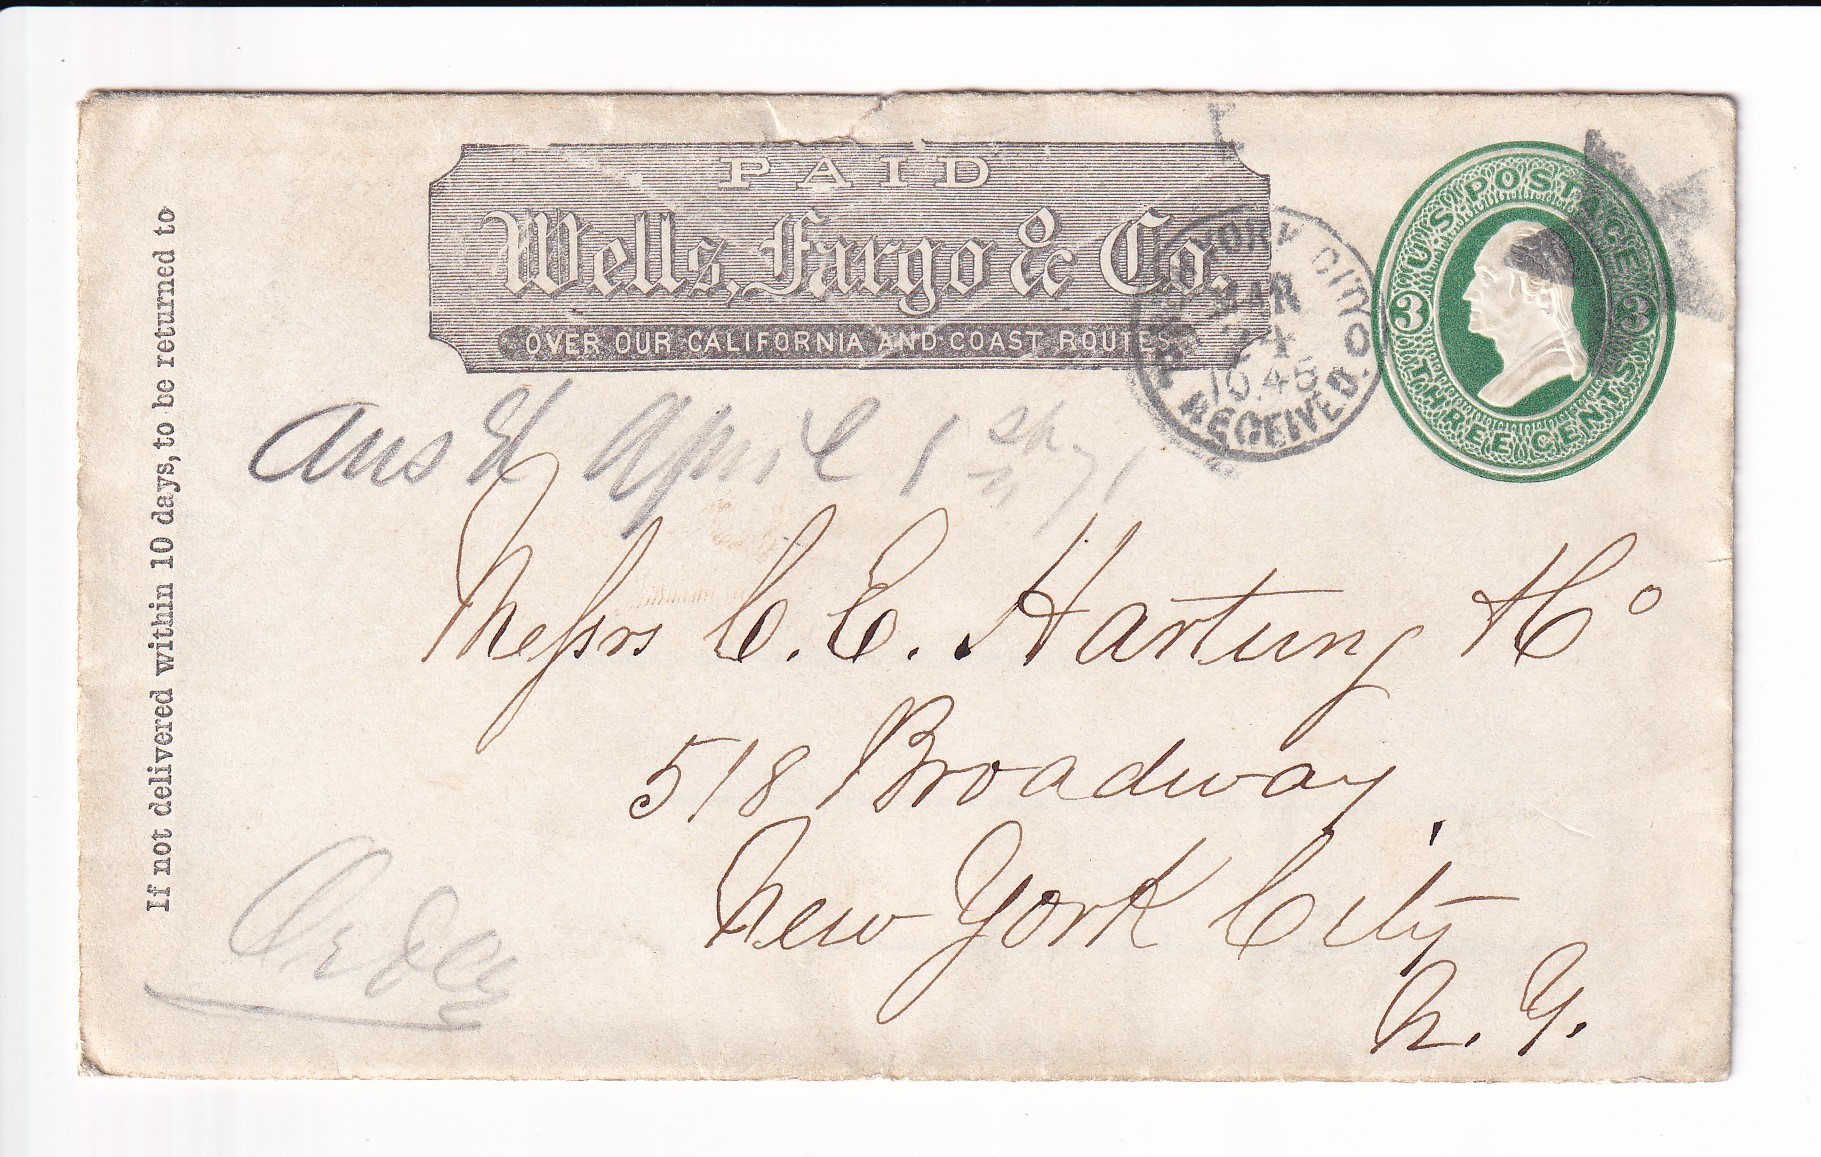 PAID
Wells, Fargo & Co.
OVER OUR CALIFORNIA AND COAST ROUTES.
U.S. POSTAGE
3 3
THREE CENTS
YORK CITY
MAR
24
10.45
RECEIVED.
If not delivered within 10 days, to be returned to
Ansd April 1st
Messrs C. E. Hartung & Co
518 Broadway
New York City
N. Y.